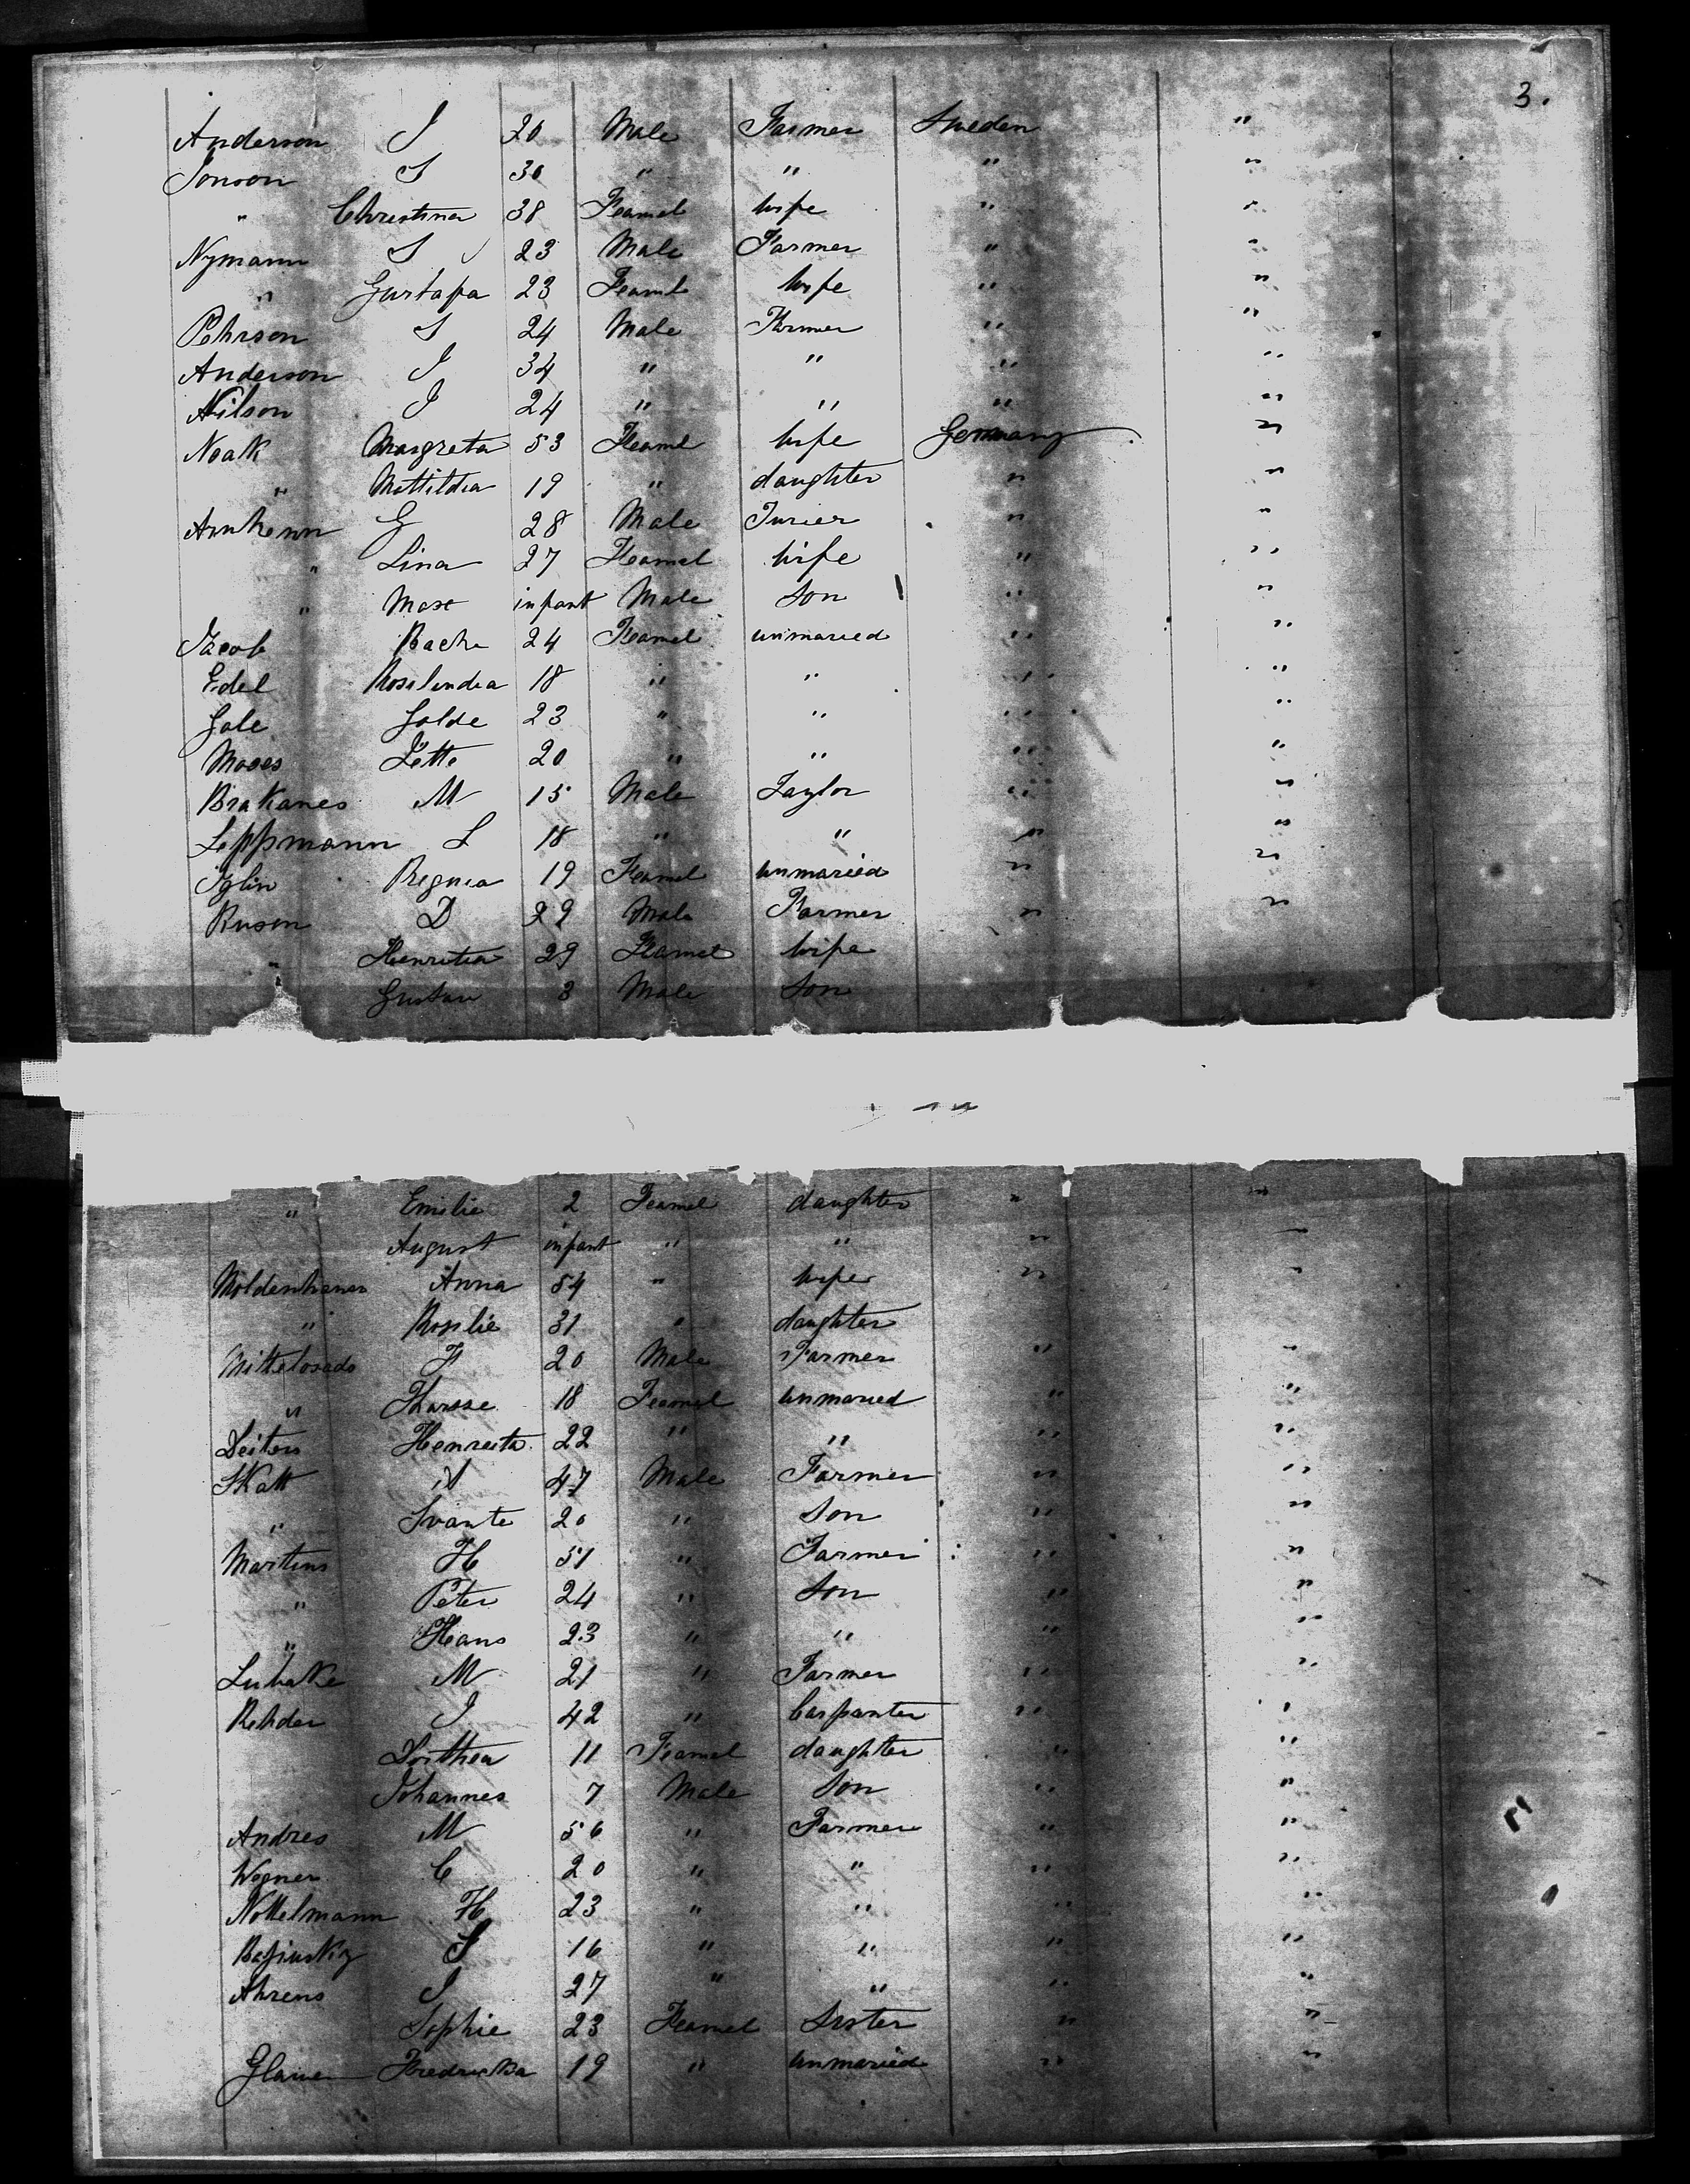 3.
Anderson J 20 Male Farmer Sweden "
Jonson S 30 " " " "
" Christina 38 Feamel wife " "
Nymann S 23 Male Farmer " "
" Gustafa 23 Feamel wife " "
Pehrson S 24 Male Farmer " "
Anderson J 34 " " " "
Nilson J 24 " " " "
Noak Margreta 53 Feamel wife Germany "
" Mattildia 19 " daughter " "
G 28 Male " "
" Lina 27 Feamel wife " "
" Max infant Male Son " "
Jacob 24 Feamel unmaried " "
Edel Rosalindia 18 " " " "
Gale Golde 23 " " " "
Moses Jette 20 " " " "
Brakanes M 15 Male Taylor " "
Leppmann L 18 " " " "
Iglin Regina 19 Feamel unmaried " "
Ruson D 29 Male Farmer " "
" Henretia 29 Feamel wife
Gustav 3 Male Son
" Emilie 2 Feamel daughter " "
August infant " " " "
Moldenhauer Anna 54 " wife " "
" Rosalie 31 " daughter " "
20 Male Farmer " "
" 18 Feamel unmaried " "
Henreita 22 " " " "
Skatt A 47 Male Farmer " "
" Svante 20 " Son " "
Martens H 51 " Farmer " "
" Peter 24 " Son " "
" Hans 23 " " " "
Lubake M 21 " Farmer " "
Rehder J 42 " Carpanter " "
Dorthea 11 Feamel daughter " "
Johannes 7 Male Son " "
Andres M 56 " Farmer " "
Wegner C 20 " " " "
Nottelmann H 23 " " " "
S 16 " " " "
Ahrens J 27 " " " "
Sophie 23 Feamel Sister " "
Fredricka 19 " unmaried " "